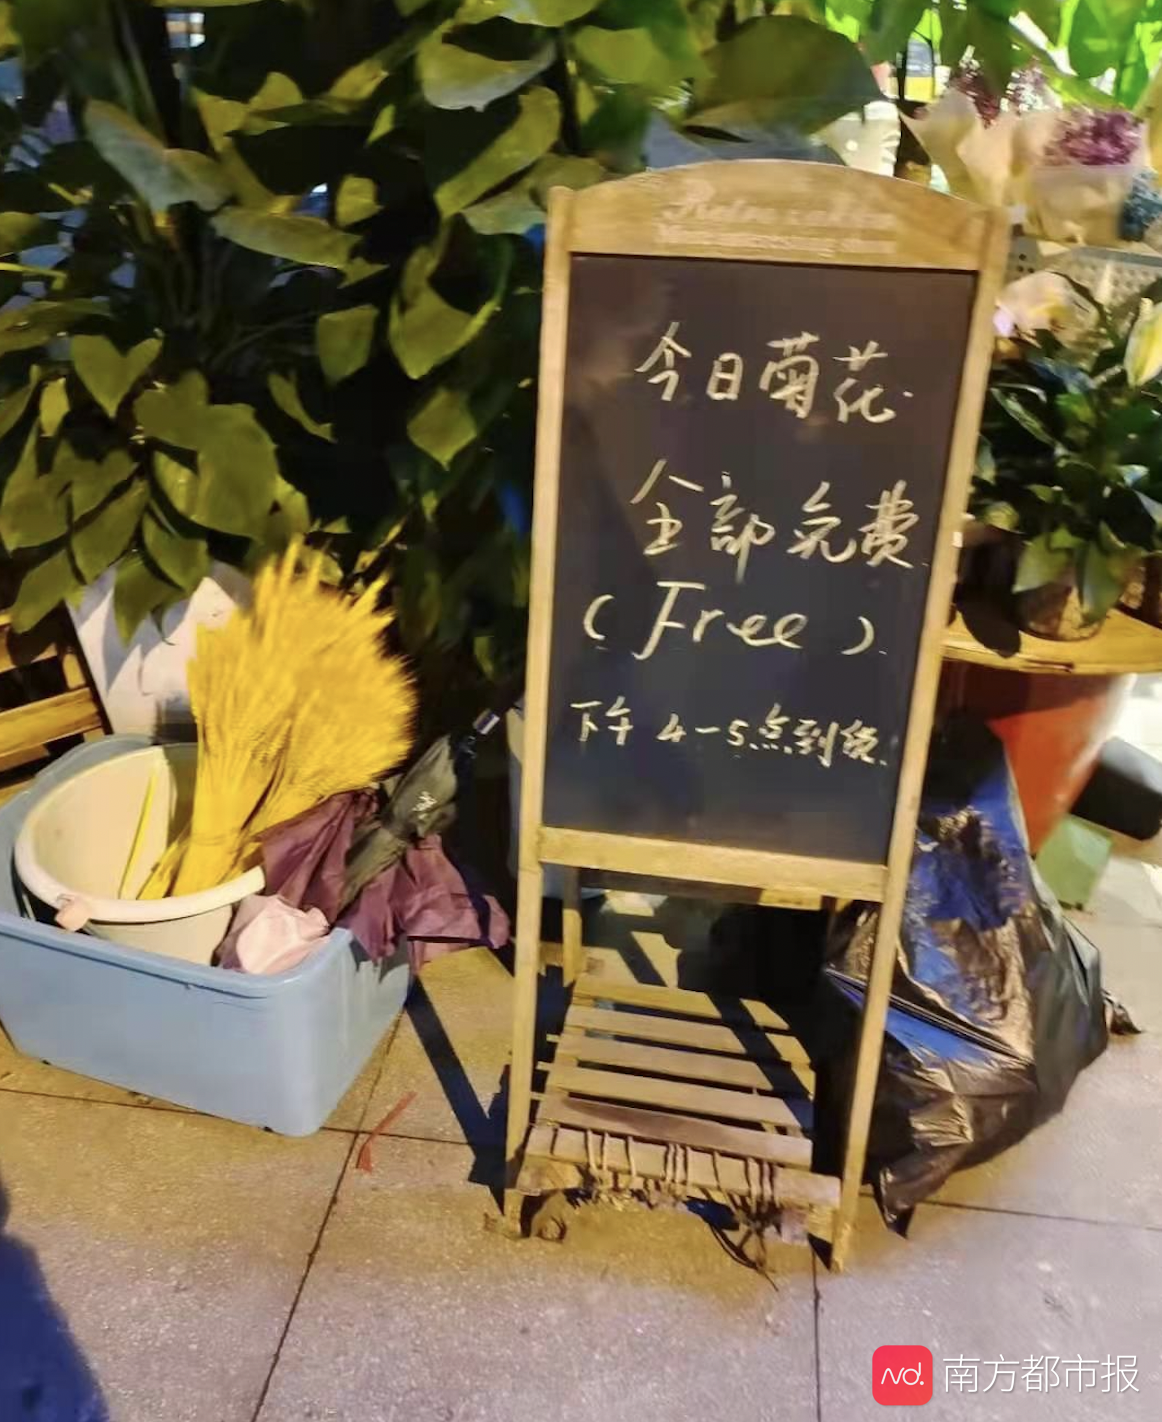 今日菊花
全部免费
(Free)
下午 4-5点到货
南方都市报